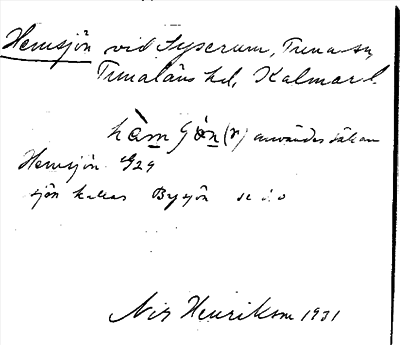 Hemsjön vid Fyserum, Tuna sn,
Tunaläns hd, Kalmar l.
hàm ʃön(n) användes sällan
Hemsjön G29
sjön kallas Bysjön se d. o
Nils Henriksson 1931